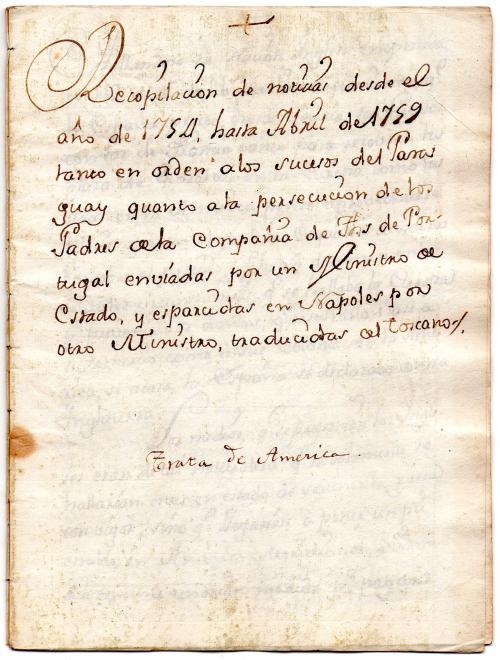 +
Recopilacion de noticias desde el
año de 1754, hasta Abril de 1759
tanto en orden alos sucesos del Para
guay quanto a la persecucion de los
Padres de la Compañia de Jhs de Por
tugal enviadas por un Ministro de
Estado, y esparcidas en Napoles por
otro Ministro, traducidas al toscano
Trata de America.